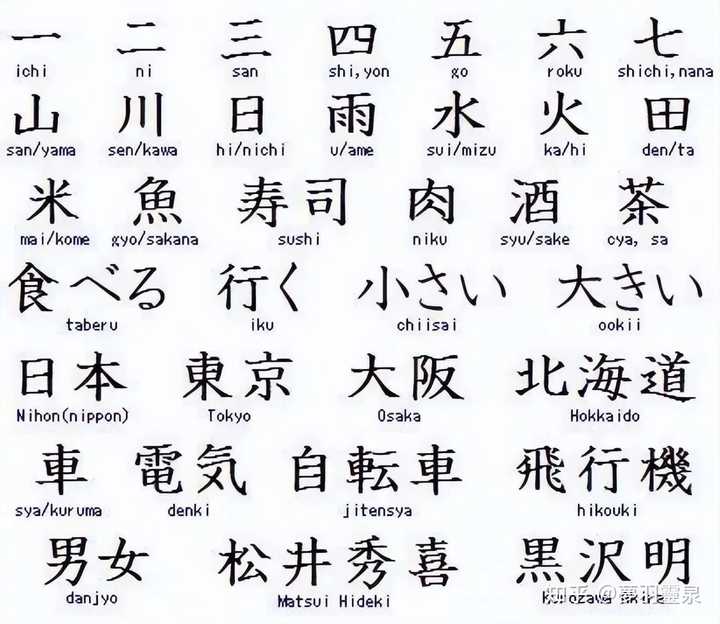 一 二 三 四 五 六 七
ichi ni san shi,yon go roku shichi,nana
山 川 日 雨 水 火 田
san/yama sen/kawa hi/nichi u/ame sui/mizu ka/hi den/ta
米 魚 寿司 肉 酒 茶
mai/kome gyo/sakana sushi niku syu/sake cya, sa
食べる 行く 小さい 大きい
taberu iku chiisai ookii
日本 東京 大阪 北海道
Nihon(nippon) Tokyo Osaka Hokkaido
車 電気 自転車 飛行機
sya/kuruma denki jitensya hikouki
男女 松井秀喜 黒沢明
danjyo Matsui Hideki Kurozawa Akira
知乎 @夢羽靈泉